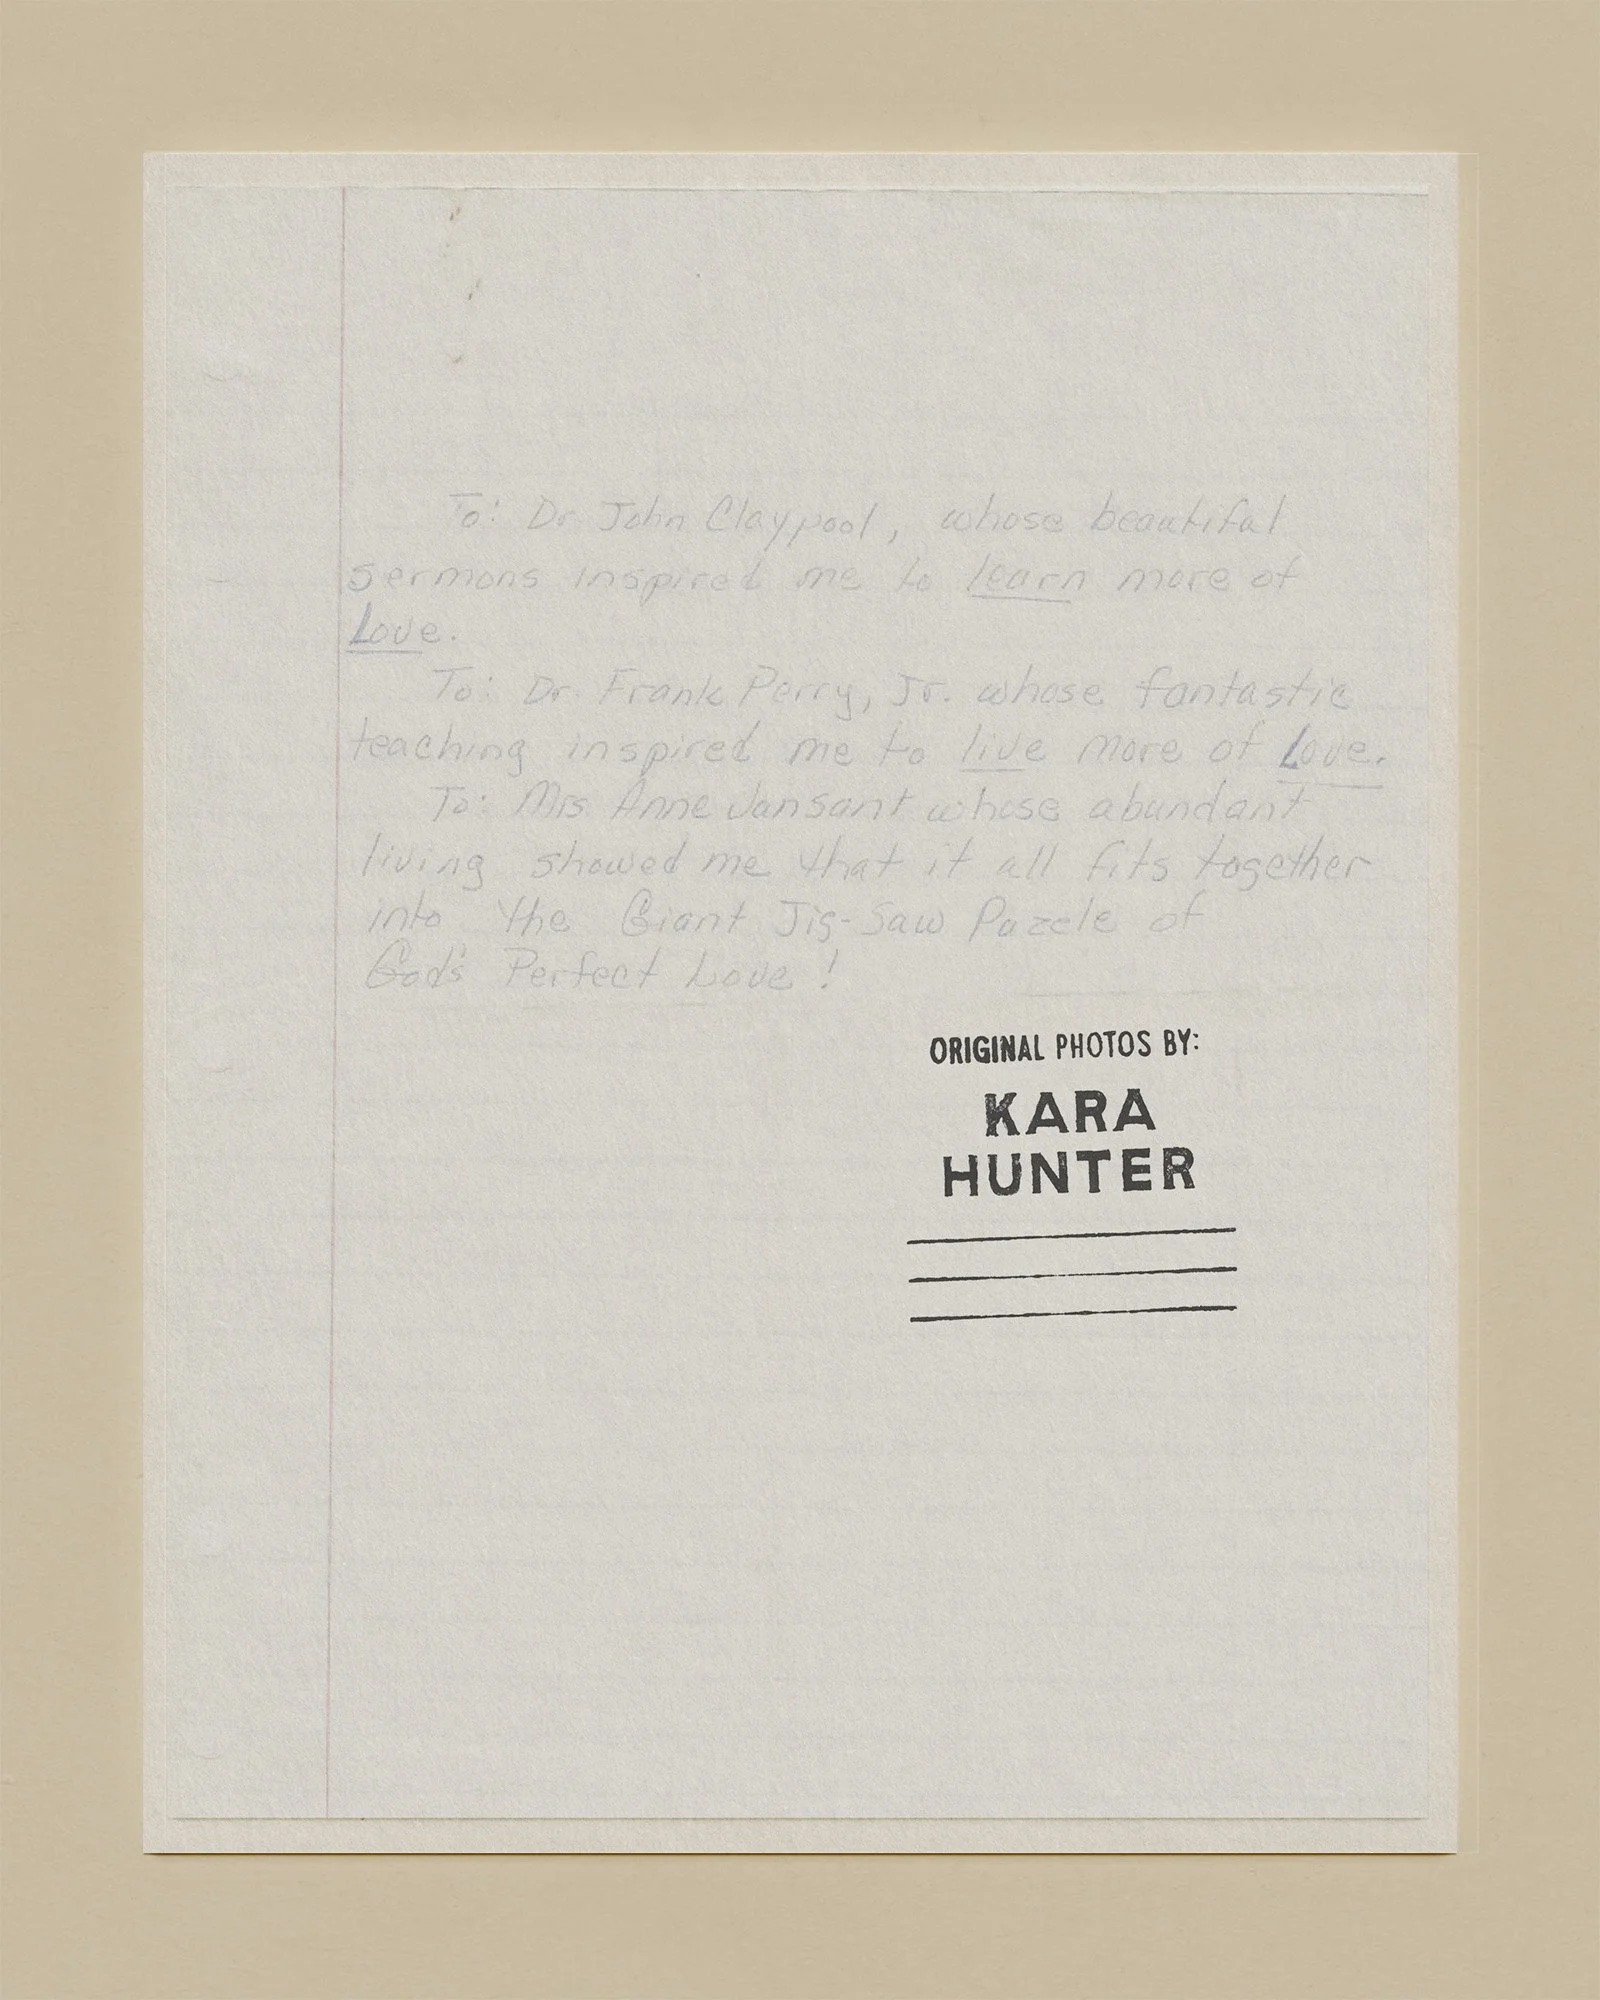 To: Dr. John Claypool, whose beautiful
sermons inspired me to learn more of
Love.
To: Dr. Frank Perry, Jr. whose fantastic
teaching inspired me to live more of Love.
To: Mrs. Anne Vansant whose abundant
living showed me that it all fits together
into the Giant Jig-Saw Puzzle of
God's Perfect Love!
ORIGINAL PHOTOS BY:
KARA
HUNTER